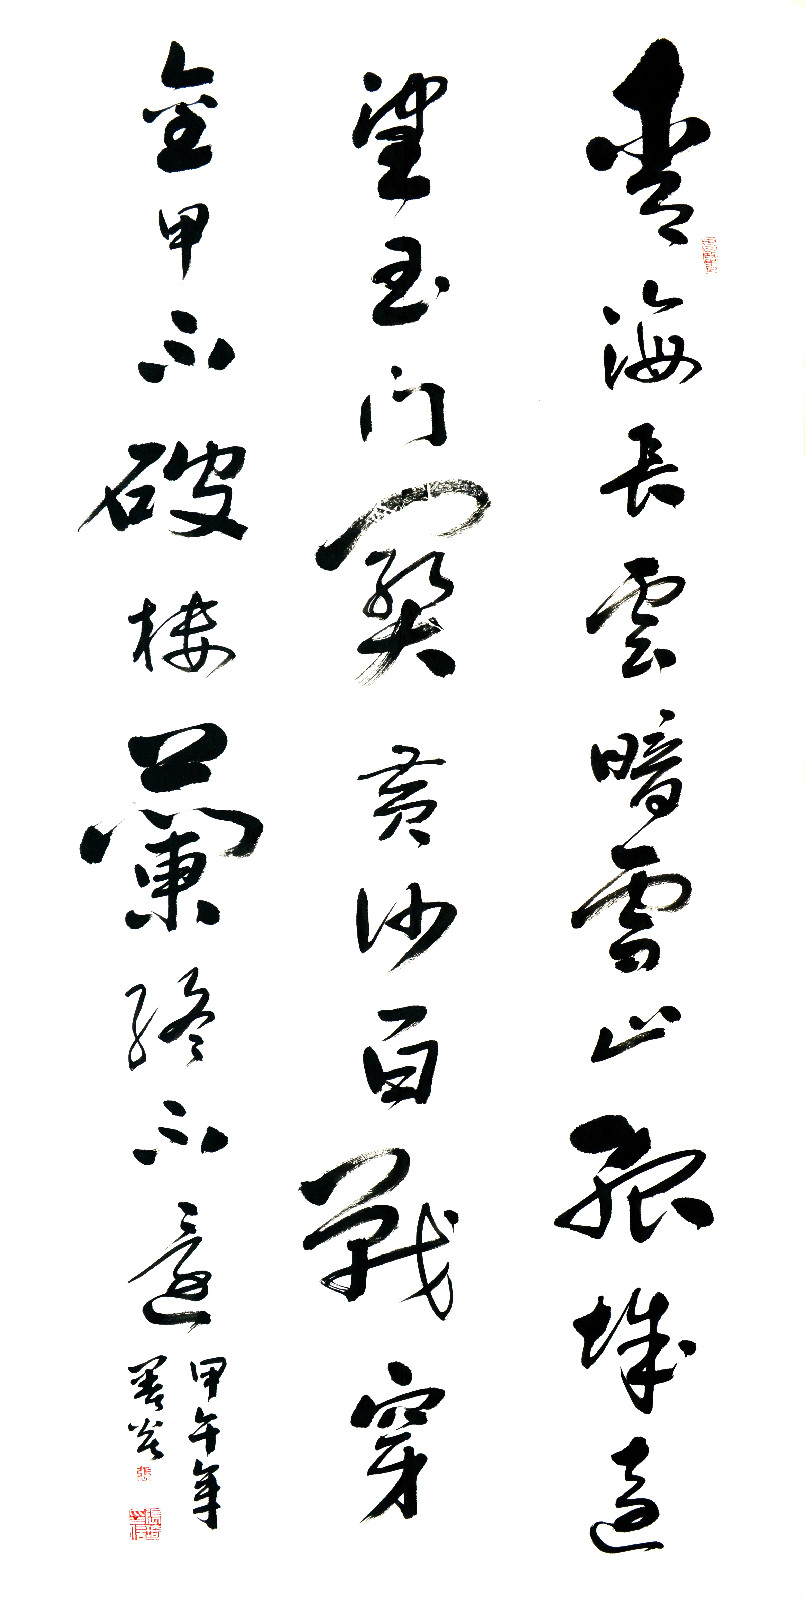 青海長雲暗雪山孤城遥
望玉門關黄沙百戰穿
金甲不破樓蘭終不還
甲午年